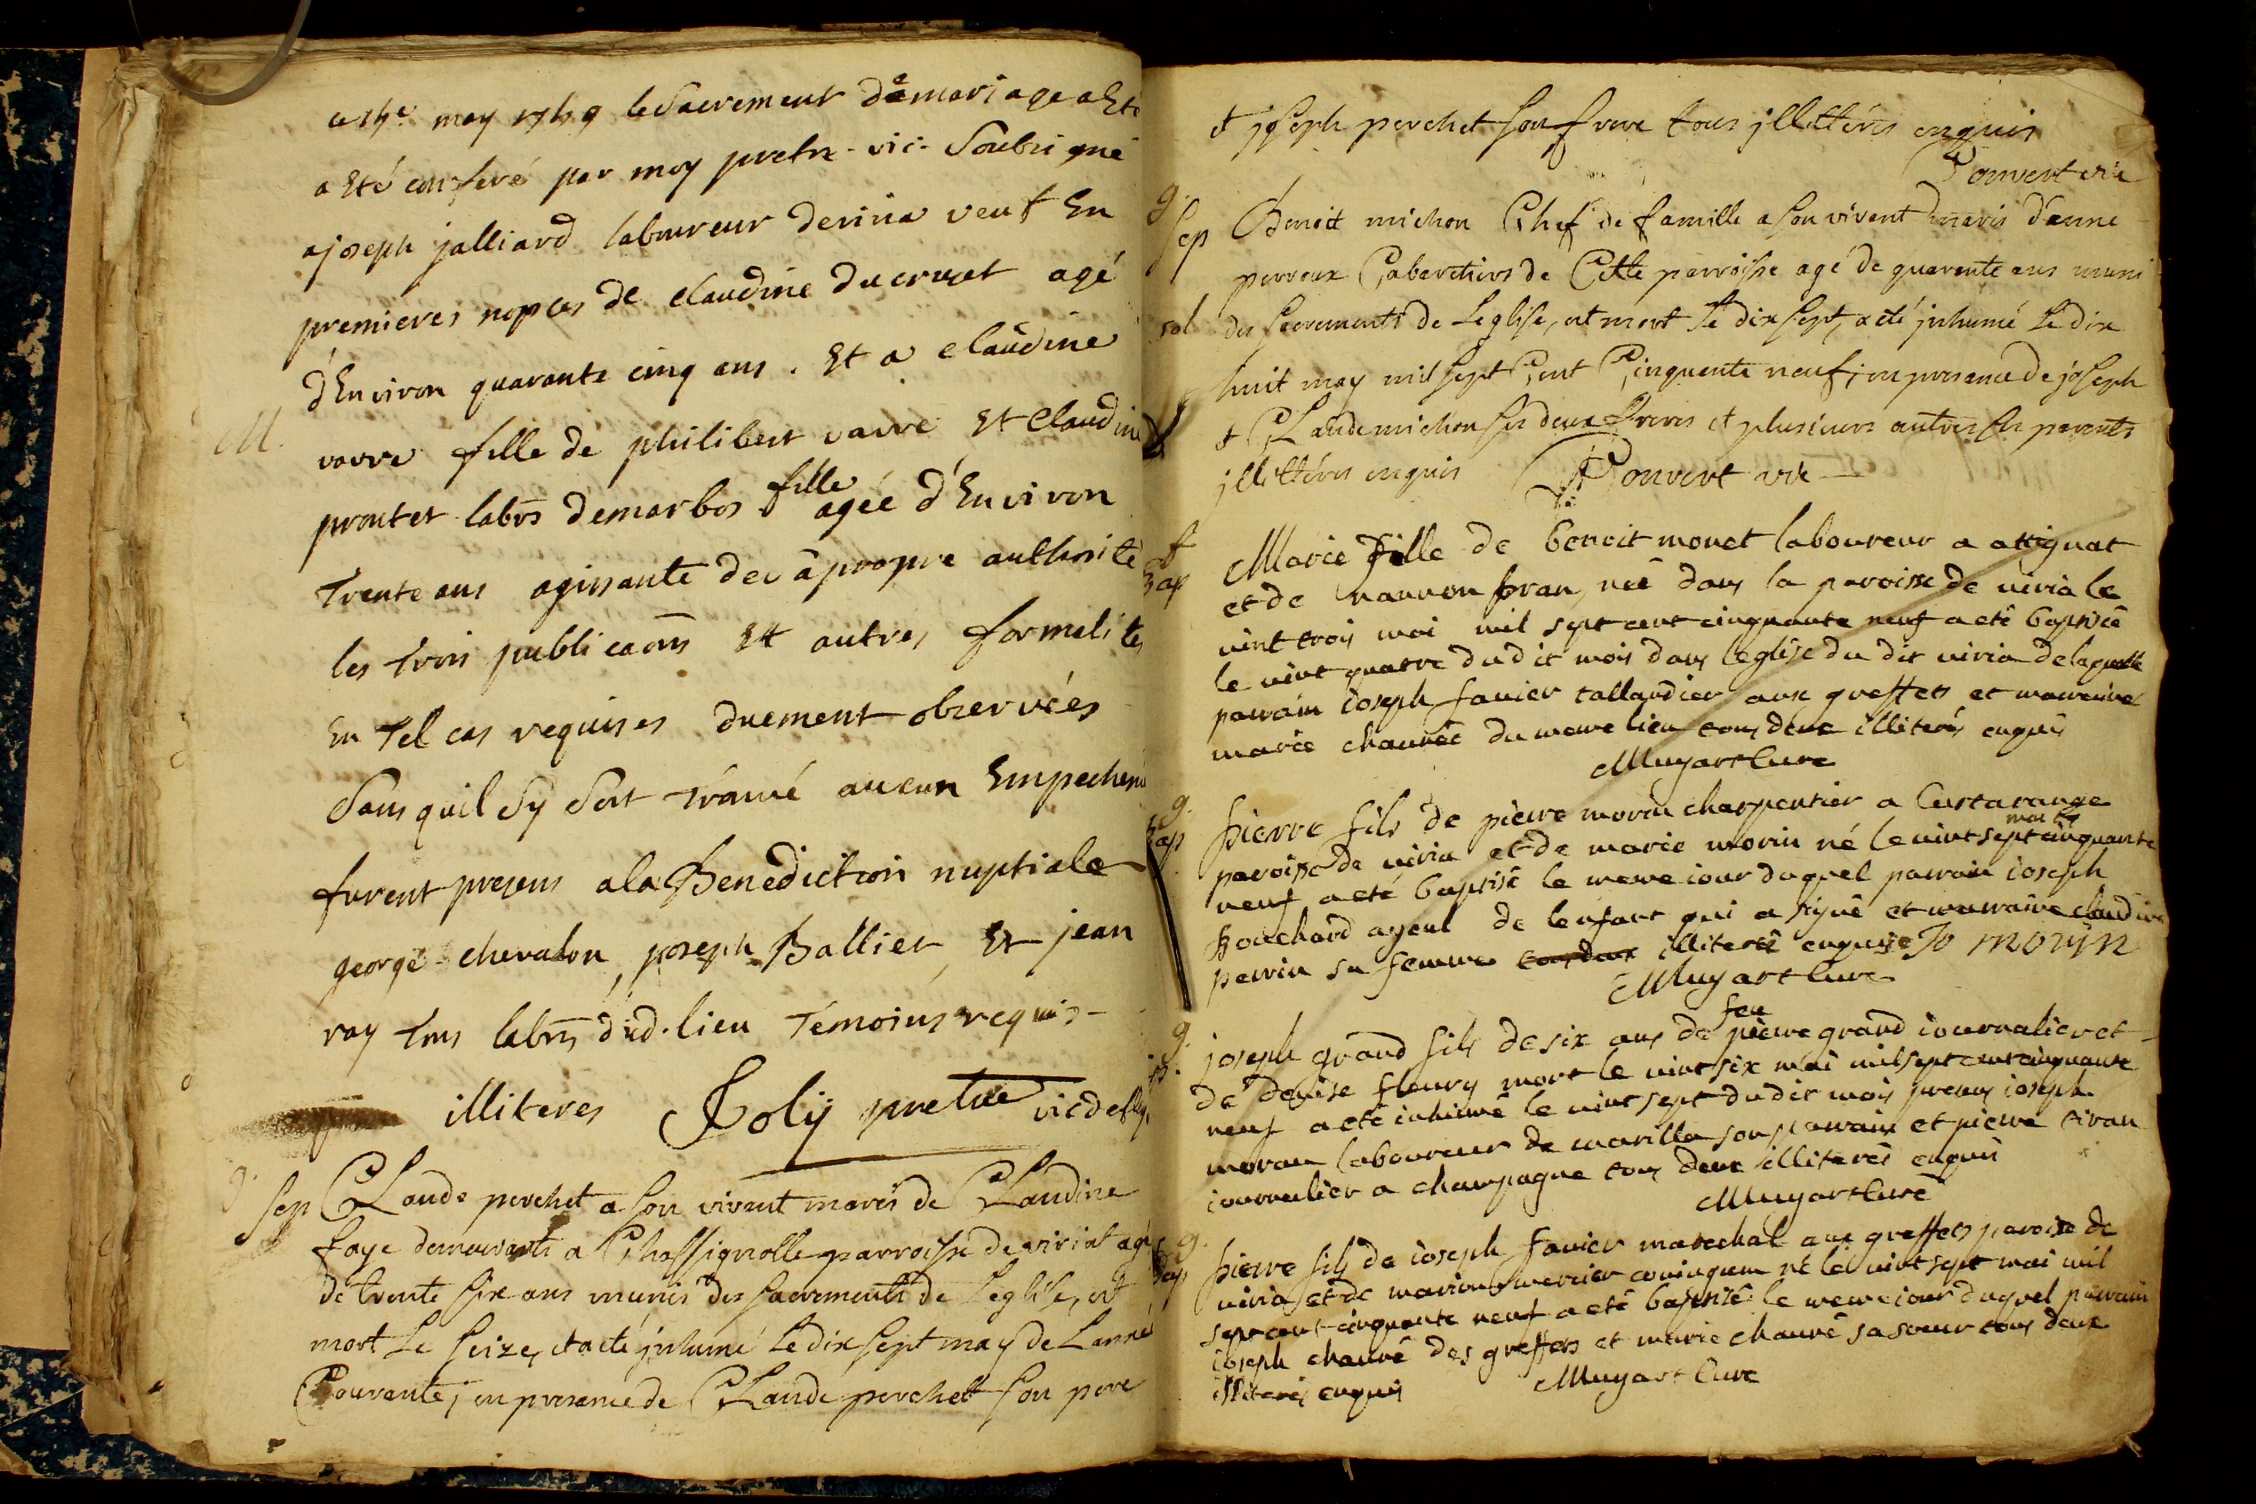 ce 15e may 1759 le Sacrement de mariage a Eté
a Eté conferé par moy pretre - vic - Soubsigné
a joseph jalliard laboureur de viria veuf En
premieres nopces de claudine ducruet agé
d'Environ quarante cinq ans . Et a claudine
M.
varre fille de philibert varre Et claudine
proutet labrs demarbos fille agée d'Environ
Trente ans agissante de sa propre authorité
les Trois publicaons Et autres formalités
En Tel cas requises duement observées
Sans quil Sy Soit Trouvé aucun Empechem
furent presens a la Benediction nuptiale
george chevalon, joseph Ballier, Et jean
ray Tous labrs dud. lieu Témoins requis -
illiteres Joly pretre vic de
g. sep CLaude perchet a son vivant maris de CLaudine
faye demeurants a Chassignolle parroisse de viriat agé
de trente six ans munis des sacrements de Leglise, est
mort Le seize, et a eté jnhumé Le dix sept may de Lannéé
Courante; en presence de CLaude perchet son pere
et joseph perchet son frere tous jllitterés enquis
Ponvert vic
g. sep Benoit michon Chef de famille a son vivant maris d'anne
perreux Cabaretiers de Cette parroisse agé de quarante ans muni
sol des sacrements de Leglise, est mort Le dix sept, a eté jnhumé Le dix
huit may mil sept Cent Cinquante neuf; en presence de joseph
et CLaude michon ses deux freres et plusieurs autres ses parents
jllitterés enquis Ponvert vic
f Bap Marie fille de benoit monet laboureur a attignat
et de nannon bran, née dans la paroisse de viria le
vint trois mai mil sept cent cinquante neuf a eté baptisée
le vint quatre du dit mois dans l'eglise du dit viria de laquelle
parrain ioseph favier taillandier aux greffets et marreine
marie chauvée du meme lieu tous deux illiterés enquis
Muyart Curé
g. Bap pierre fils de pierre morin charpentier a Curtarange
mai
paroisse de viria et de marie morin né le vint sept cinquante
neuf a eté baptisé le meme iour duquel parrain ioseph
Bouchard ayeul de lenfant qui a signé et marraine claudine
perrin sa femme tous deux illiteré enquise Jo morin
Muyart Curé
g. feu
joseph grand fils de six ans de pierre grand iournalier et
de denise fleury mort le vint six mai mil sept cent cinquante
neuf a eté inhumé le vint sept du dit mois presens ioseph
moran laboureur de marilla son parrain et pierre tiran
iournalier a champagne tous deux illiterés enquis
Muyart Curé
g. Bap pierre fils de ioseph favier marechal aux greffets paroise de
viria et de marion mercier coniguem né le vint sept mai mil
sept cent cinquante neuf a eté baptisé le meme iour duquel parrain
ioseph chauvé des greffets et marie chauvé sa soeur tous deux
illiterés enquis Muyart Curé